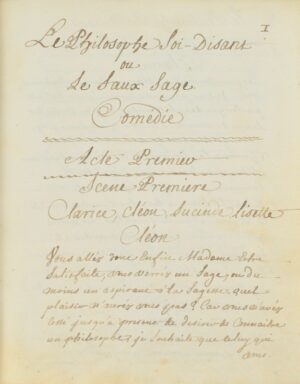 1
Le Philosophe Soi-Disant
ou
Le Faux Sage
Comédie
Acte Premier
Scene Premiere
Clarice, Cléon, Lucinde, lisette
Cléon
Vous allés donc Enfin Madame Etre
Satisfaite, vous verrés un Sage, ou du
moins un aspirant à la Sagesse, quel
plaisir n'aurés vous pas? Car vous n'avés
cessé jusqu'à present de desirer de Connaitre
un philosophe, je Souhaite que celuy que
vous